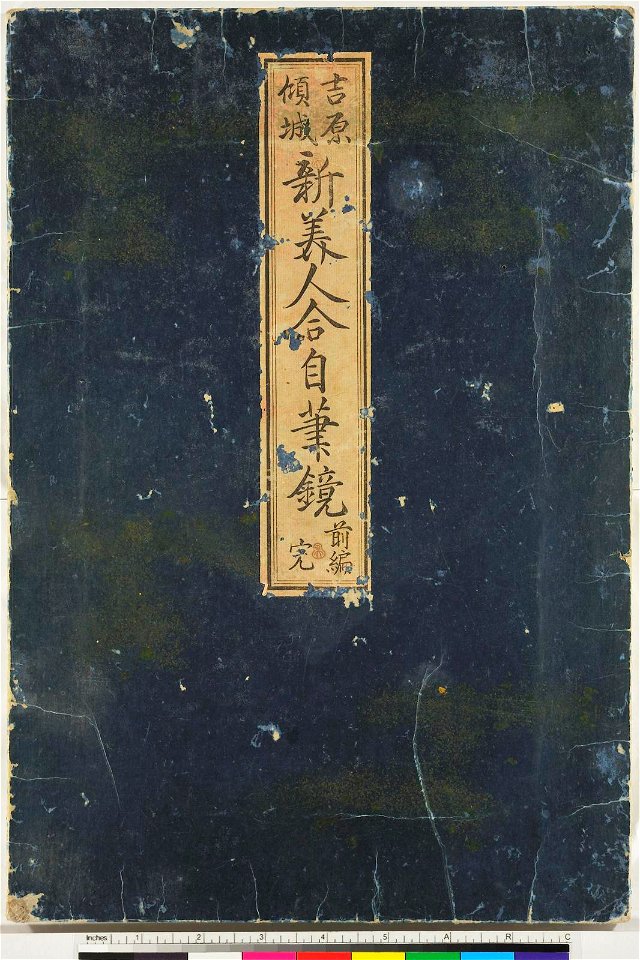 吉原
傾城
新美人合自筆鏡
前編
完
Inches 1 2 3 4 5 A R C